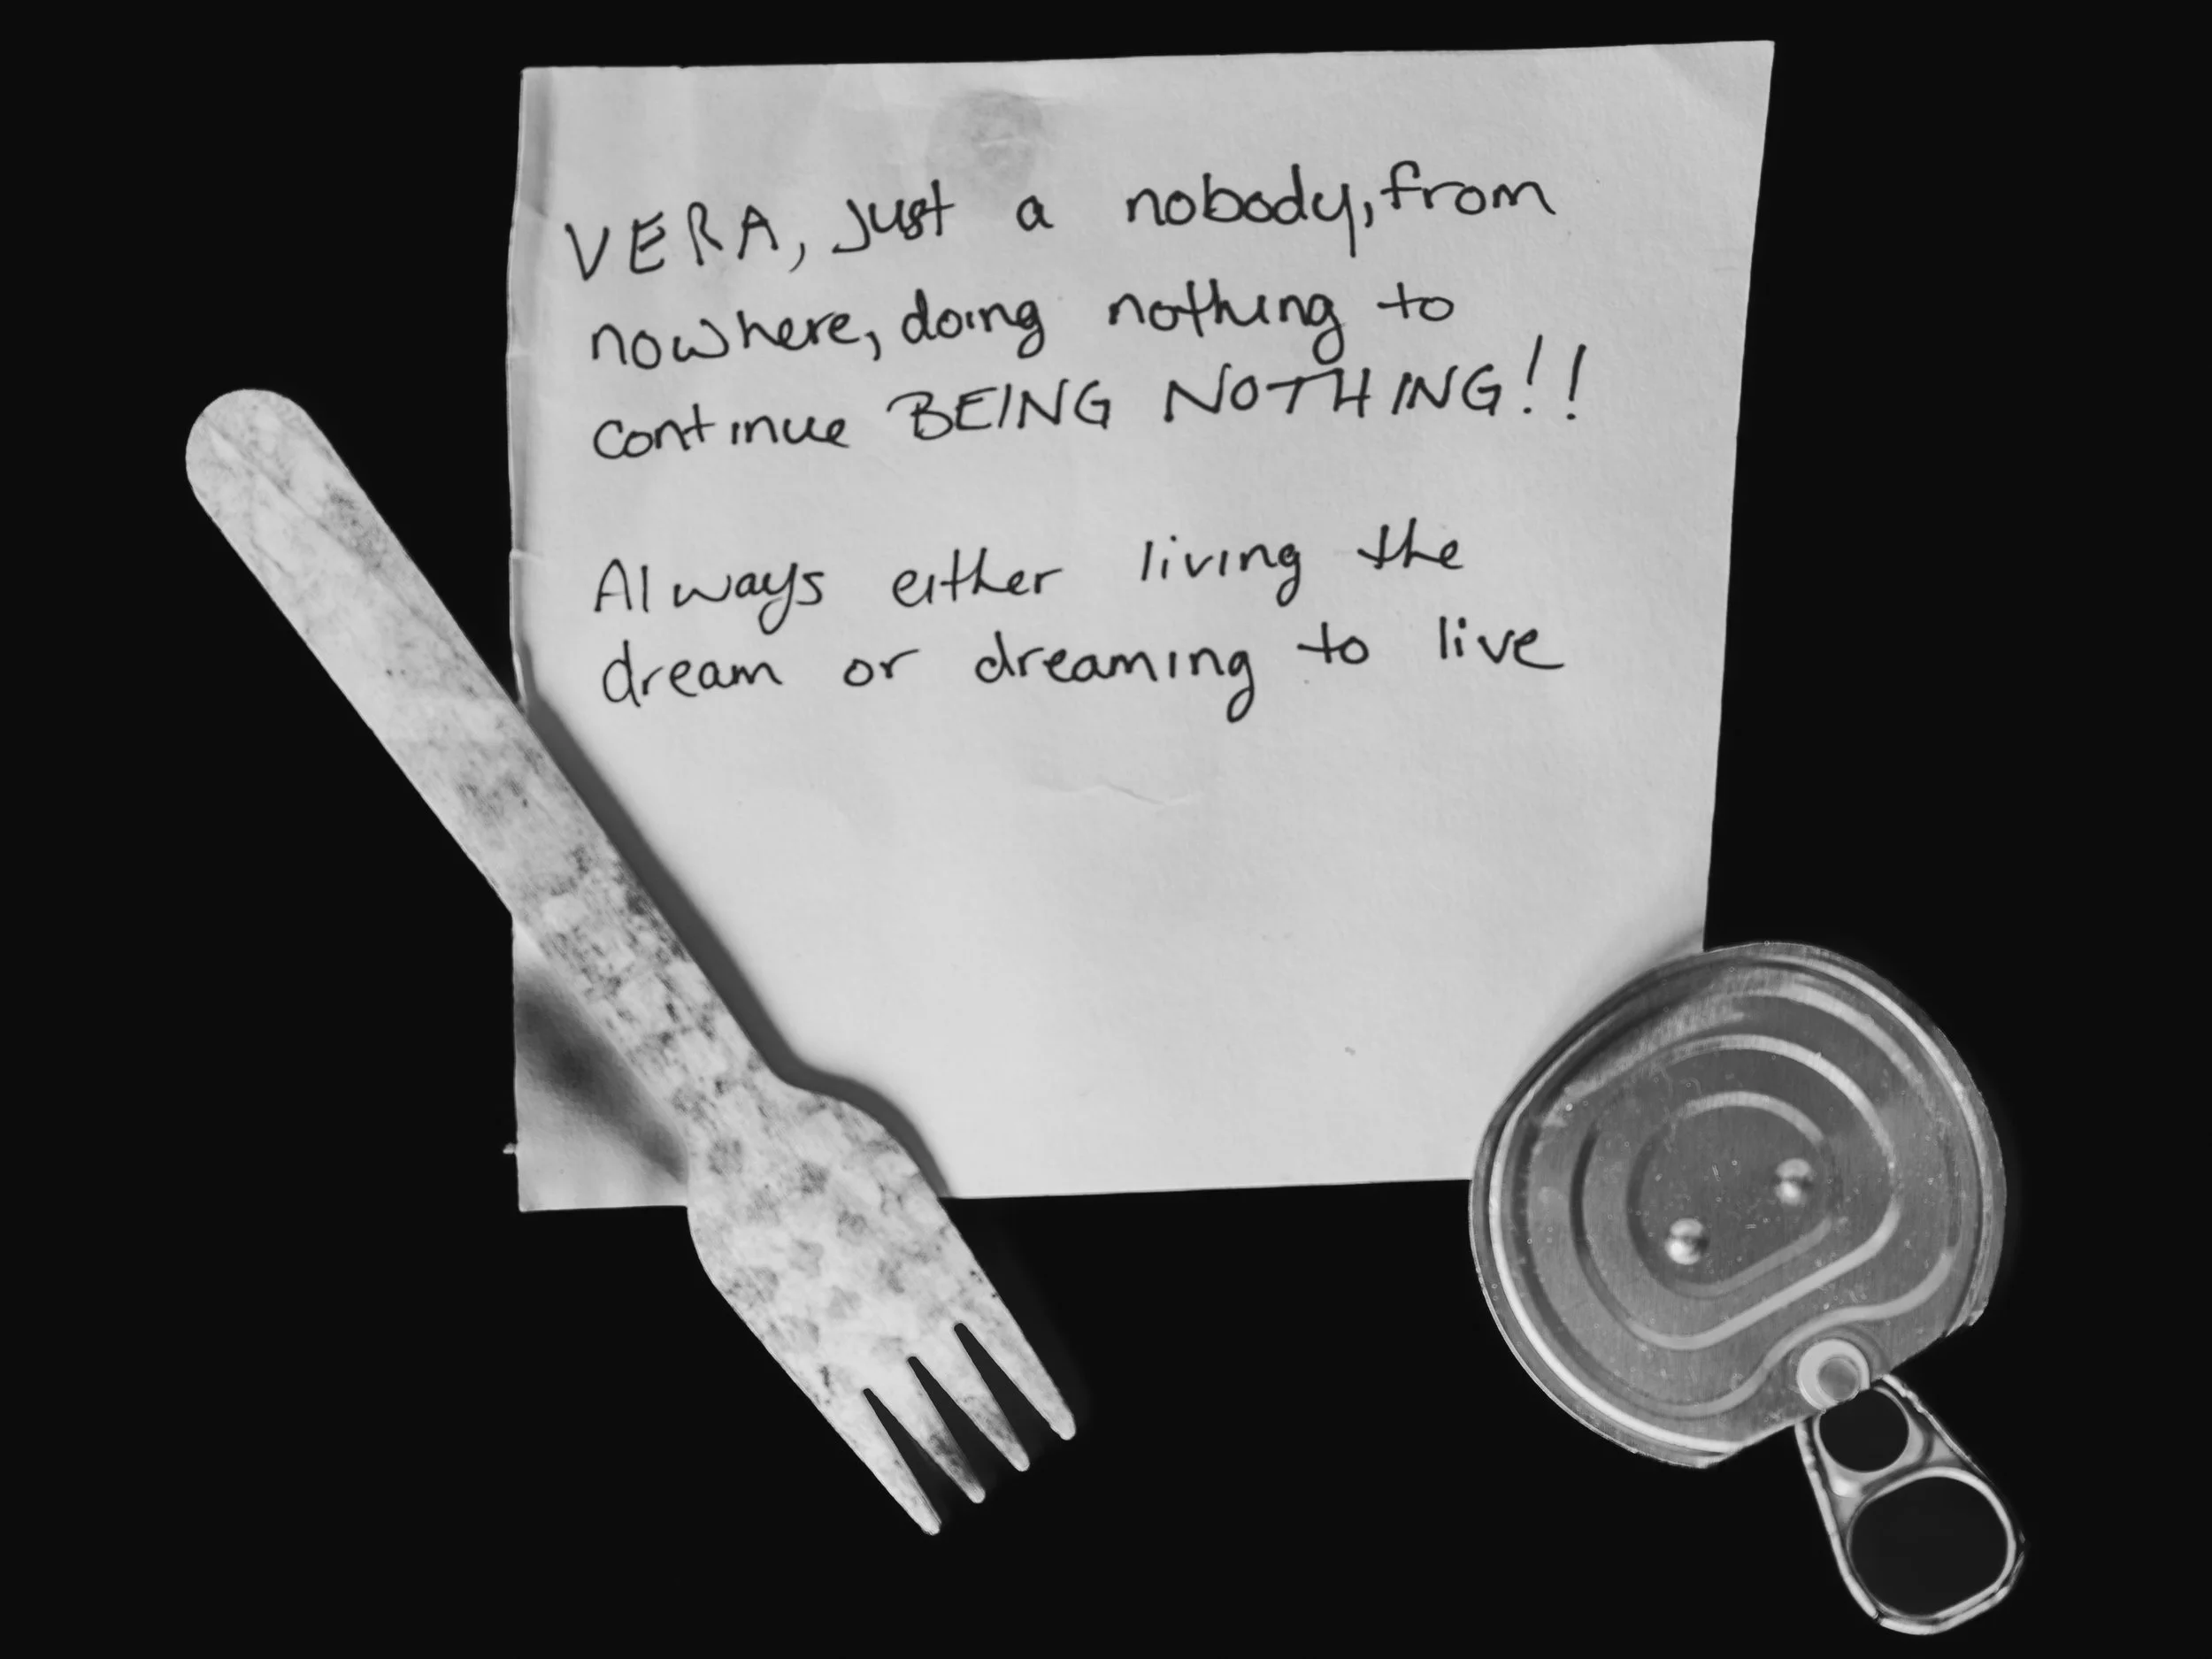 VERA, just a nobody, from
nowhere, doing nothing to
continue BEING NOTHING!!
Always either living the
dream or dreaming to live